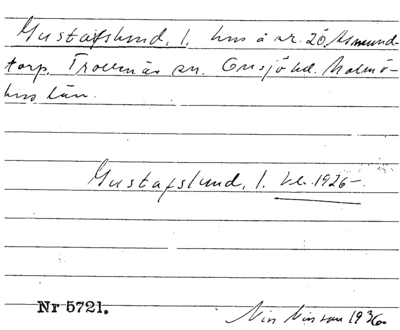 Gustafslund, l. hus å nr. 20 Asmund-
torp. Trollenäs sn. Onsjö hd. Malmö-
hus län.
Gustafslund, l. kb. 1926-
Nr 5721.
1936